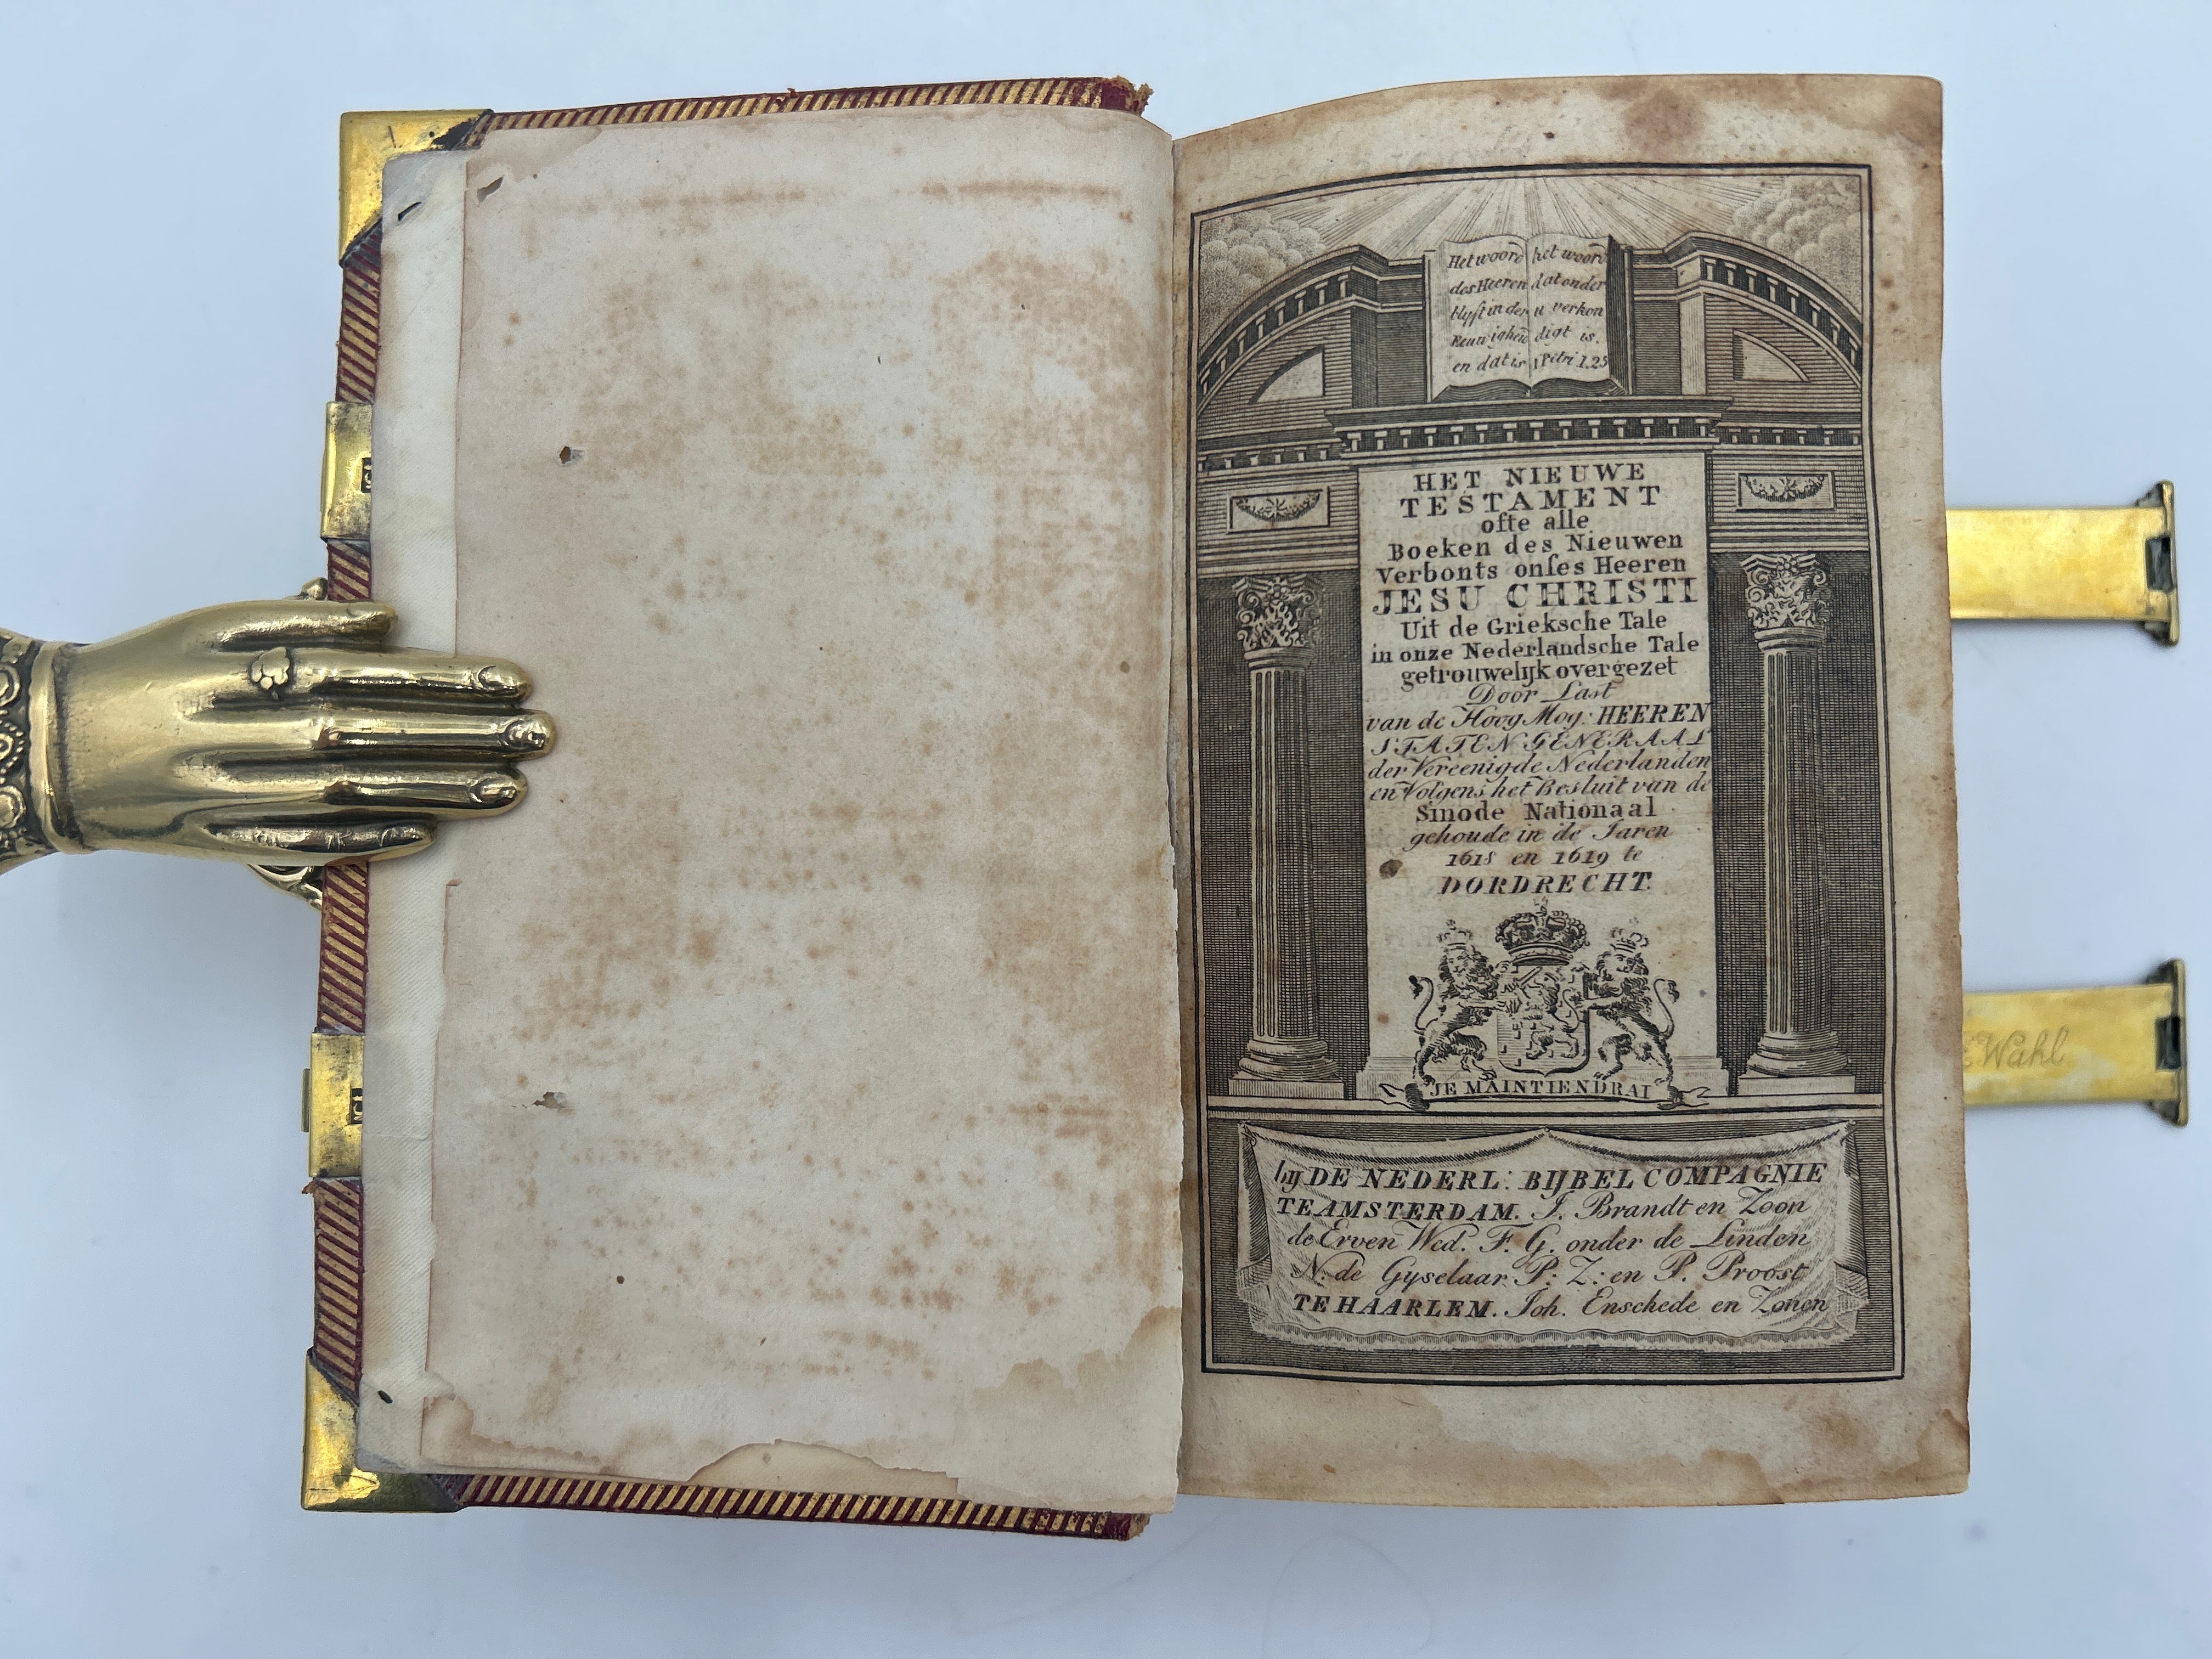 Het woord
des Heeren
blyft in der
Eeuwigheid
en dat is
het woord
dat onder
u verkon
digt is.
1 Petri 1.25
HET NIEUWE
TESTAMENT
ofte alle
Boeken des Nieuwen
Verbonts onſes Heeren
JESU CHRISTI
Uit de Grieksche Tale
in onze Nederlandsche Tale
getrouwelijk overgezet
Door Last
van de Hoog Mog: HEEREN
STATEN GENERAAL
der Vereenigde Nederlanden
en Volgens het Besluit van de
Sinode Nationaal
gehoude in de Jaren
1618 en 1619 te
DORDRECHT.
JE MAINTIENDRAI
bij DE NEDERL: BIJBEL COMPAGNIE
TE AMSTERDAM. J. Brandt en Zoon
de Erven Wed. F. G. onder de Linden
N. de Gyselaar P: Z: en P. Proost
TE HAARLEM. Joh. Enschede en Zonen
Wahl